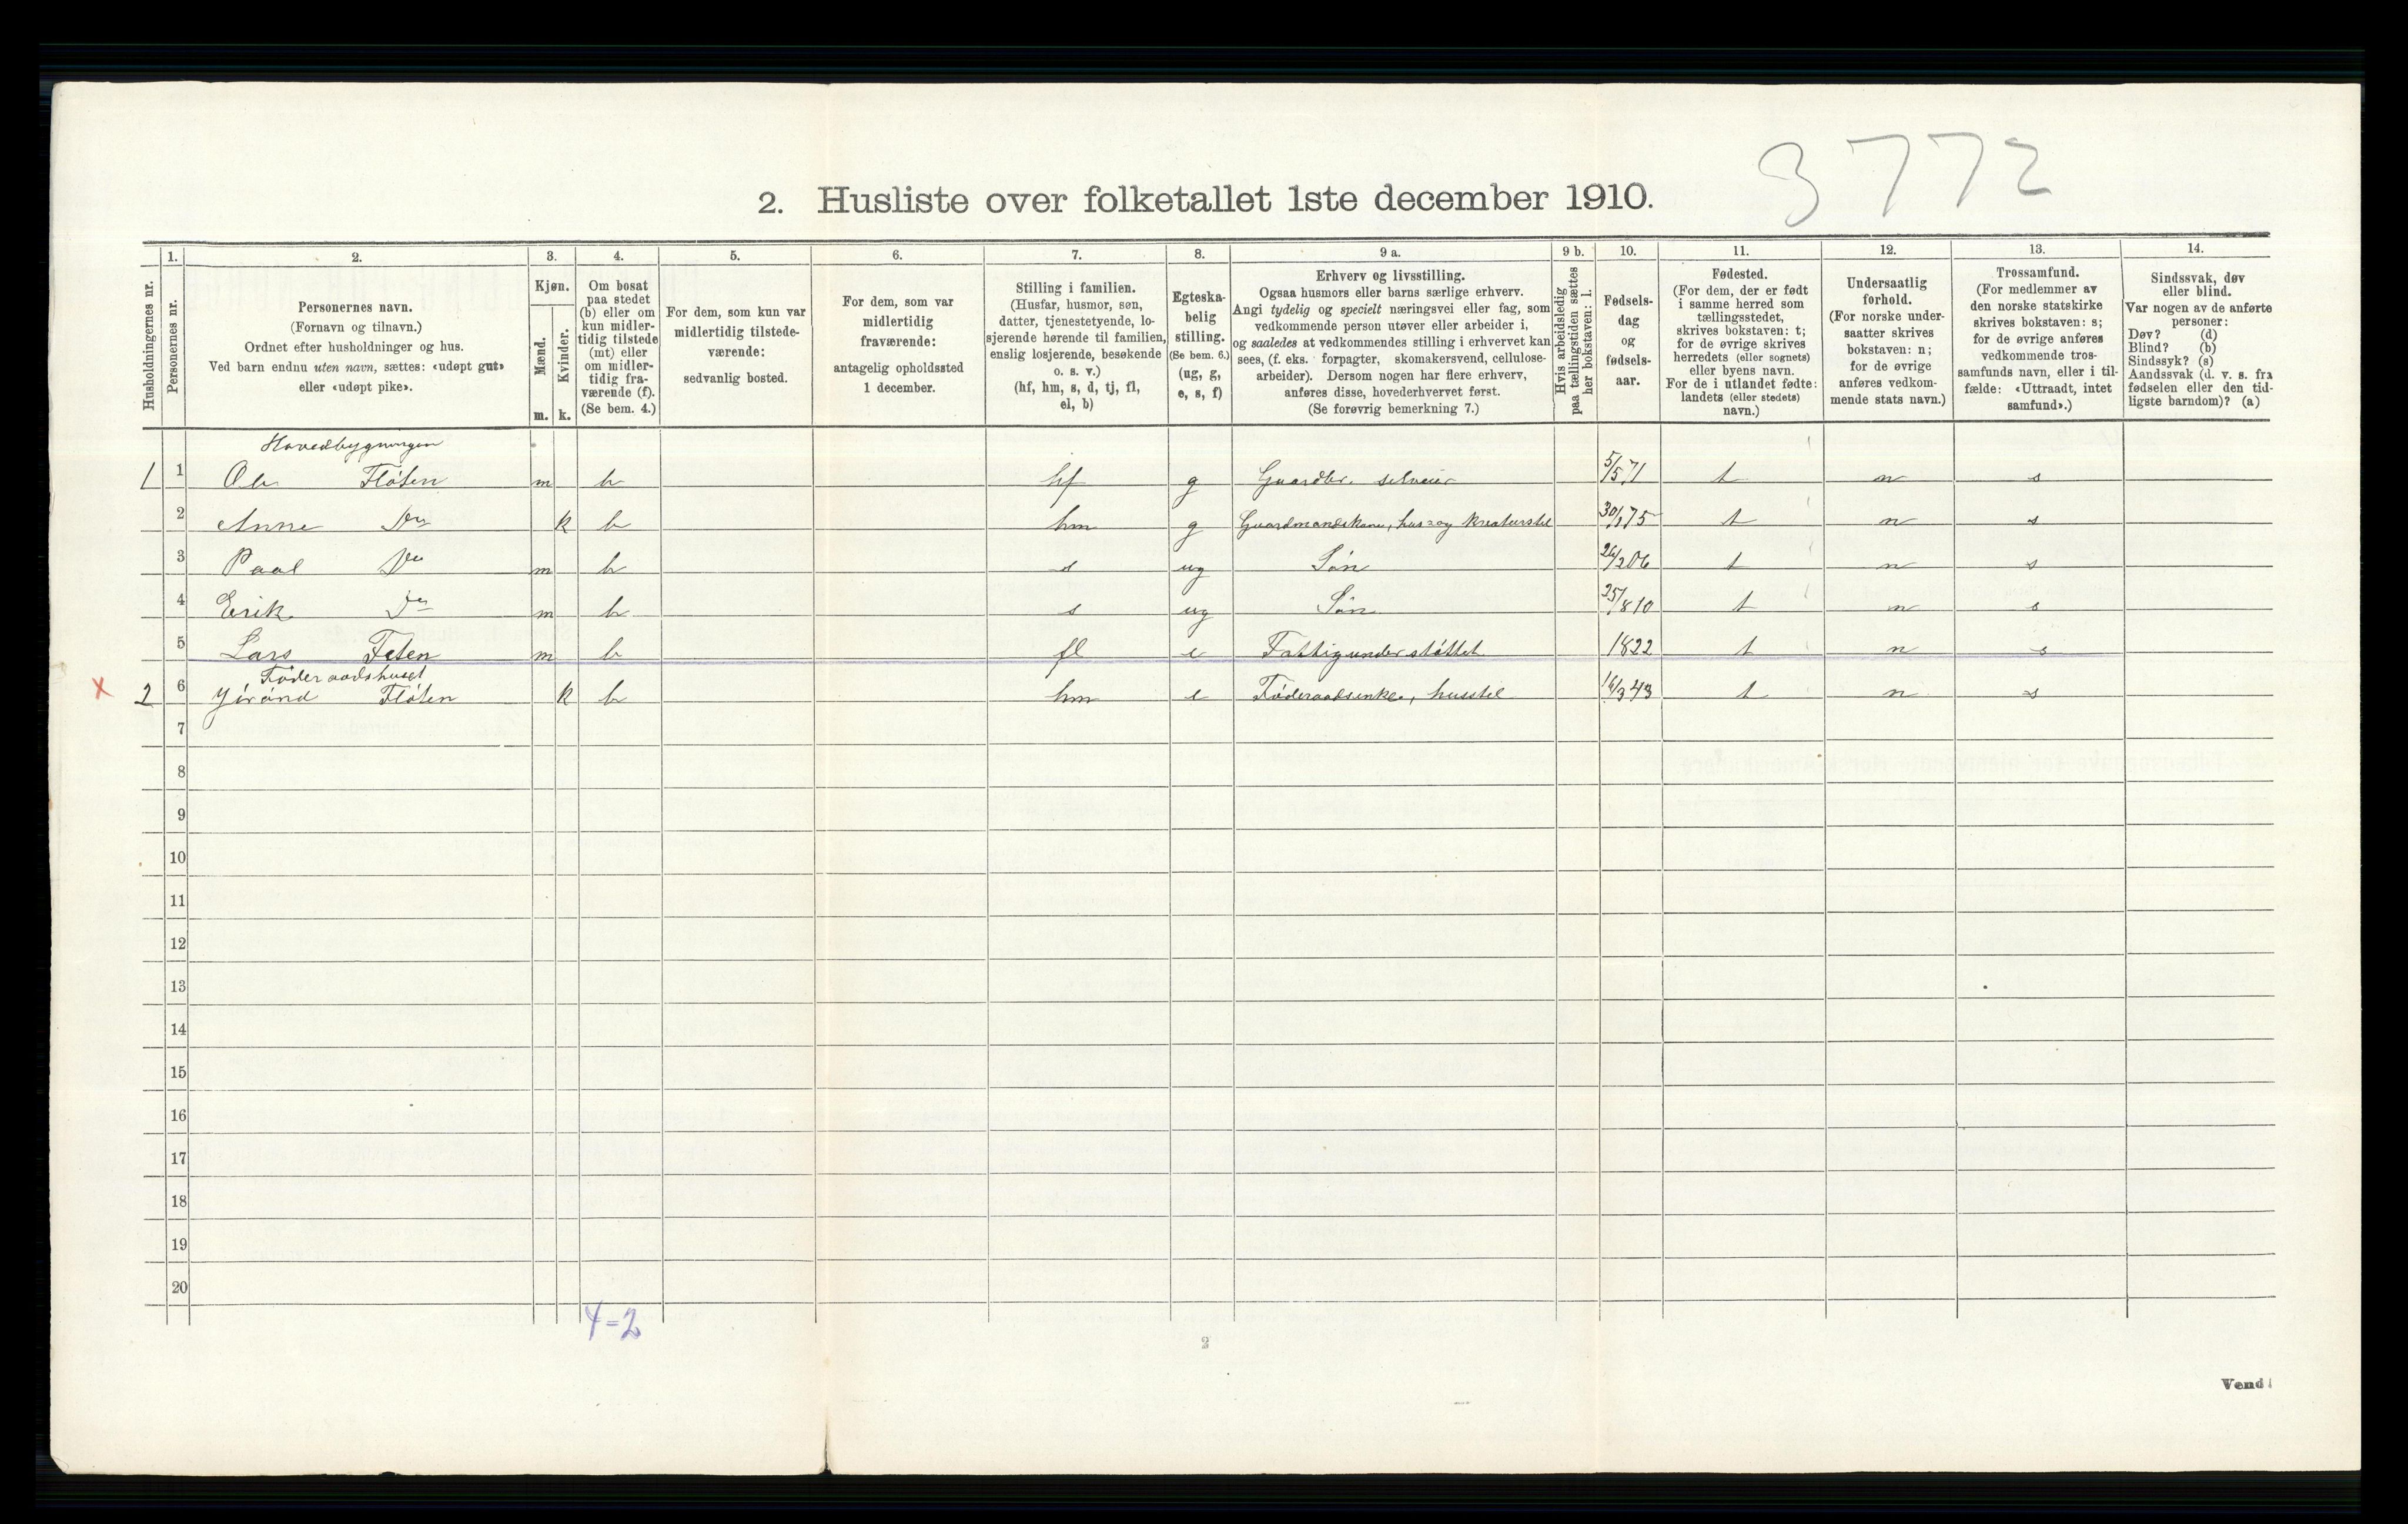 3772
2. Husliste over folketallet 1ste december 1910.
Husholdningernes nr.
1.
Personernes nr.
2.
Personernes navn.
(Fornavn og tilnavn.)
Ordnet efter husholdninger og hus.
Ved barn endnu uten navn, sættes: «udøpt gut»
eller «udøpt pike».
3.
Kjøn.
Mænd.
Kvinder.
m. k.
4.
Om bosat
paa stedet
(b) eller om
kun midler-
tidig tilstede
(mt) eller
om midler-
tidig fra-
værende (f).
(Se bem. 4.)
5.
For dem, som kun var
midlertidig tilstede-
værende:
sedvanlig bosted.
6.
For dem, som var
midlertidig
fraværende:
antagelig opholdssted
1 december.
7.
Stilling i familien.
(Husfar, husmor, søn,
datter, tjenestetyende, lo-
sjerende hørende til familien,
enslig losjerende, besøkende
o. s. v.)
(hf, hm, s, d, tj, fl,
el, b)
8.
Egteska-
belig
stilling.
(Se bem. 6.)
(ug, g,
e, s, f)
9 a.
Erhverv og livsstilling.
Ogsaa husmors eller barns særlige erhverv.
Angi tydelig og specielt næringsvei eller fag, som
vedkommende person utøver eller arbeider i,
og saaledes at vedkommendes stilling i erhvervet kan
sees, (f. eks. forpagter, skomakersvend, cellulose-
arbeider). Dersom nogen har flere erhverv,
anføres disse, hovederhvervet først.
(Se forøvrig bemerkning 7.)
9 b.
Hvis arbeidsledig
paa tællingstiden sættes
her bokstaven: l.
10.
Fødsels-
dag
og
fødsels-
aar.
11.
Fødested.
(For dem, der er født
i samme herred som
tællingsstedet,
skrives bokstaven: t;
for de øvrige skrives
herredets (eller sognets)
eller byens navn.
For de i utlandet fødte:
landets (eller stedets)
navn.)
12.
Undersaatlig
forhold.
(For norske under-
saatter skrives
bokstaven: n;
for de øvrige
anføres vedkom-
mende stats navn.)
13.
Trossamfund.
(For medlemmer av
den norske statskirke
skrives bokstaven: s;
for de øvrige anføres
vedkommende tros-
samfunds navn, eller i til-
fælde: «Uttraadt, intet
samfund».)
14.
Sindssvak, døv
eller blind.
Var nogen av de anførte
personer:
Døv? (d)
Blind? (b)
Sindssyk? (s)
Aandssvak (d. v. s. fra
fødselen eller den tid-
ligste barndom)? (a)
Hovedbygningen
1 1 Ole Fløten m b hf g Gaardbr. selveier 5/5 71 t n s
2 Anne Do k b hm g Gaardmandskone, hus- og kreaturstel 75 t n s
3 Paal Do m b s ug Søn 26/2 06 t n s
4 Erik Do m b s ug Søn 25/8 10 t n s
5 Lars Feten m b fl e Fattigunderstøttet 1822 t n s
Føderaadshuset
x 2 6 Jørånd Fløten k b hm e Føderaadsenke, husstel 16/3 43 t n s
7
8
9
10
11
12
13
14
15
16
17
18
19
20
4=2
2
Vend!